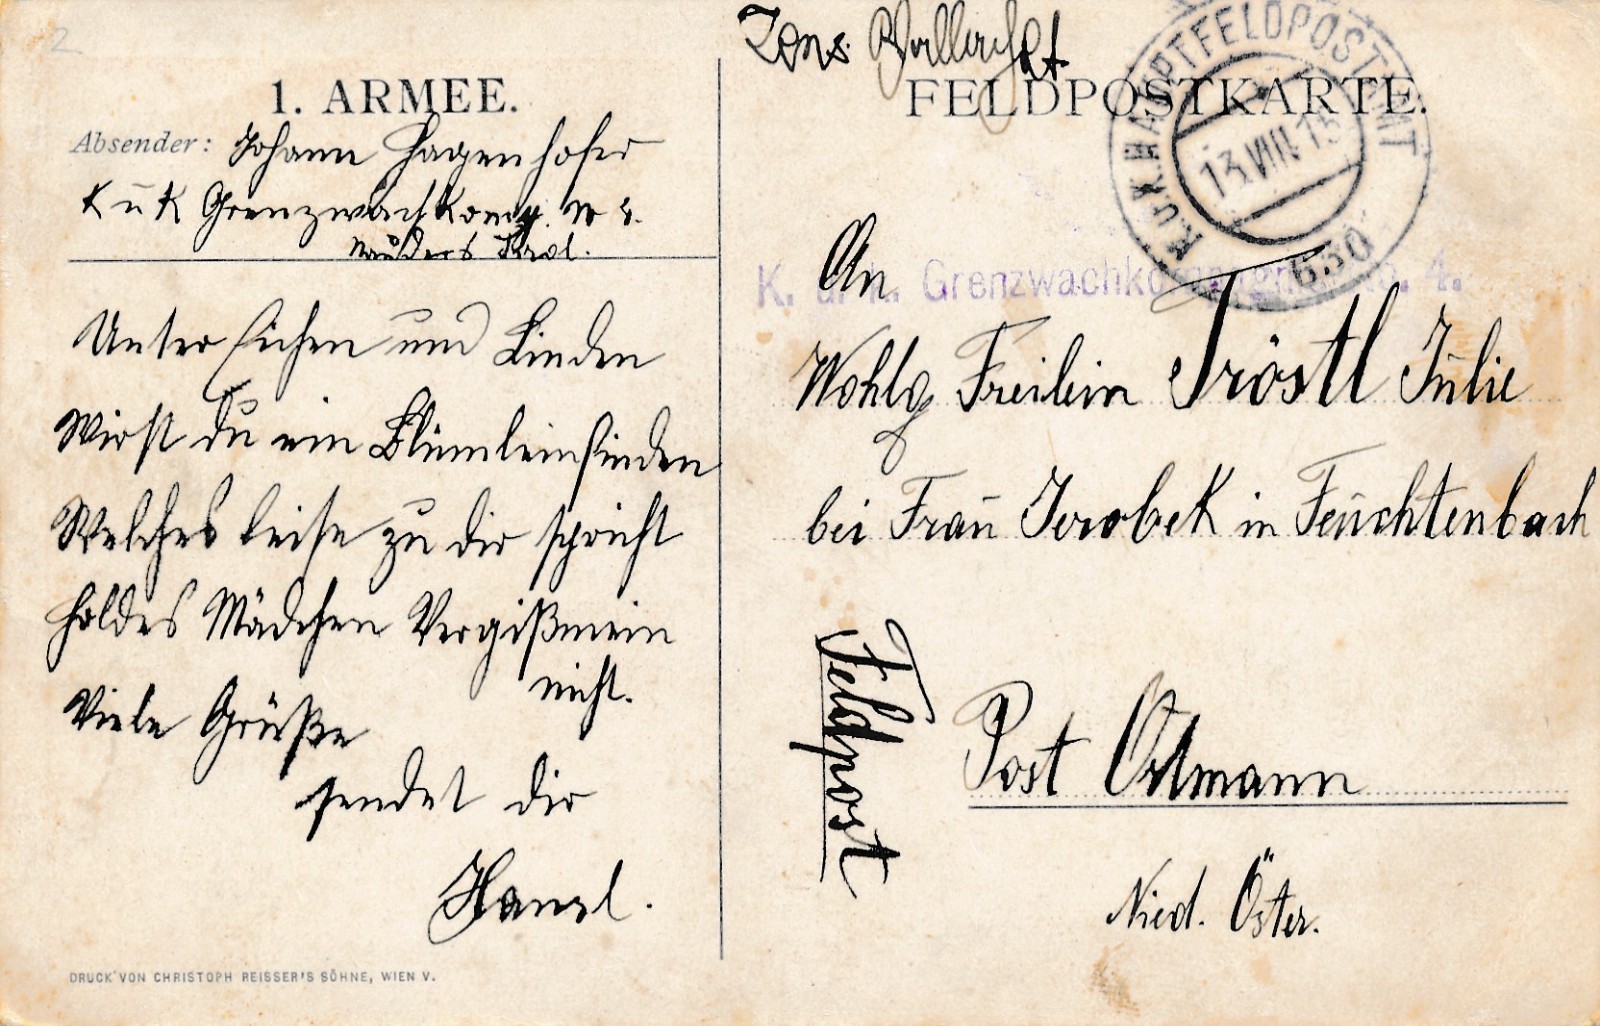 2
1. ARMEE.
Absender: Johann Hagenhofer
K u K Grenzwachkomp. N 4.
Nauders Tirol.
Unter Eichen und Linden
Wirst du ein Blümlein finden
Welches leise zu dir spricht
Holdes Mädchen Vergißmein
nicht.
Viele Grüße
sendet dir
Hansl.
DRUCK VON CHRISTOPH REISSER'S SÖHNE, WIEN V.
FELDPOSTKARTE.
K.u.K. HAUPTFELDPOSTAMT
13.VIII.15
630
K. u. k. Grenzwachkompagnie No. 4.
An
Wohlg Freilein Tröstl Julie
bei Frau Jerobek in Feuchtenbach
Feldpost
Post Ortmann
Nied. Öster.